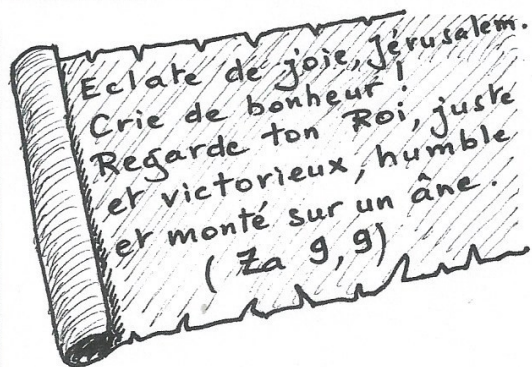 Eclate de joie, Jérusalem.
Crie de bonheur !
Regarde ton Roi, juste
et victorieux, humble
et monté sur un âne.
( Za 9, 9)